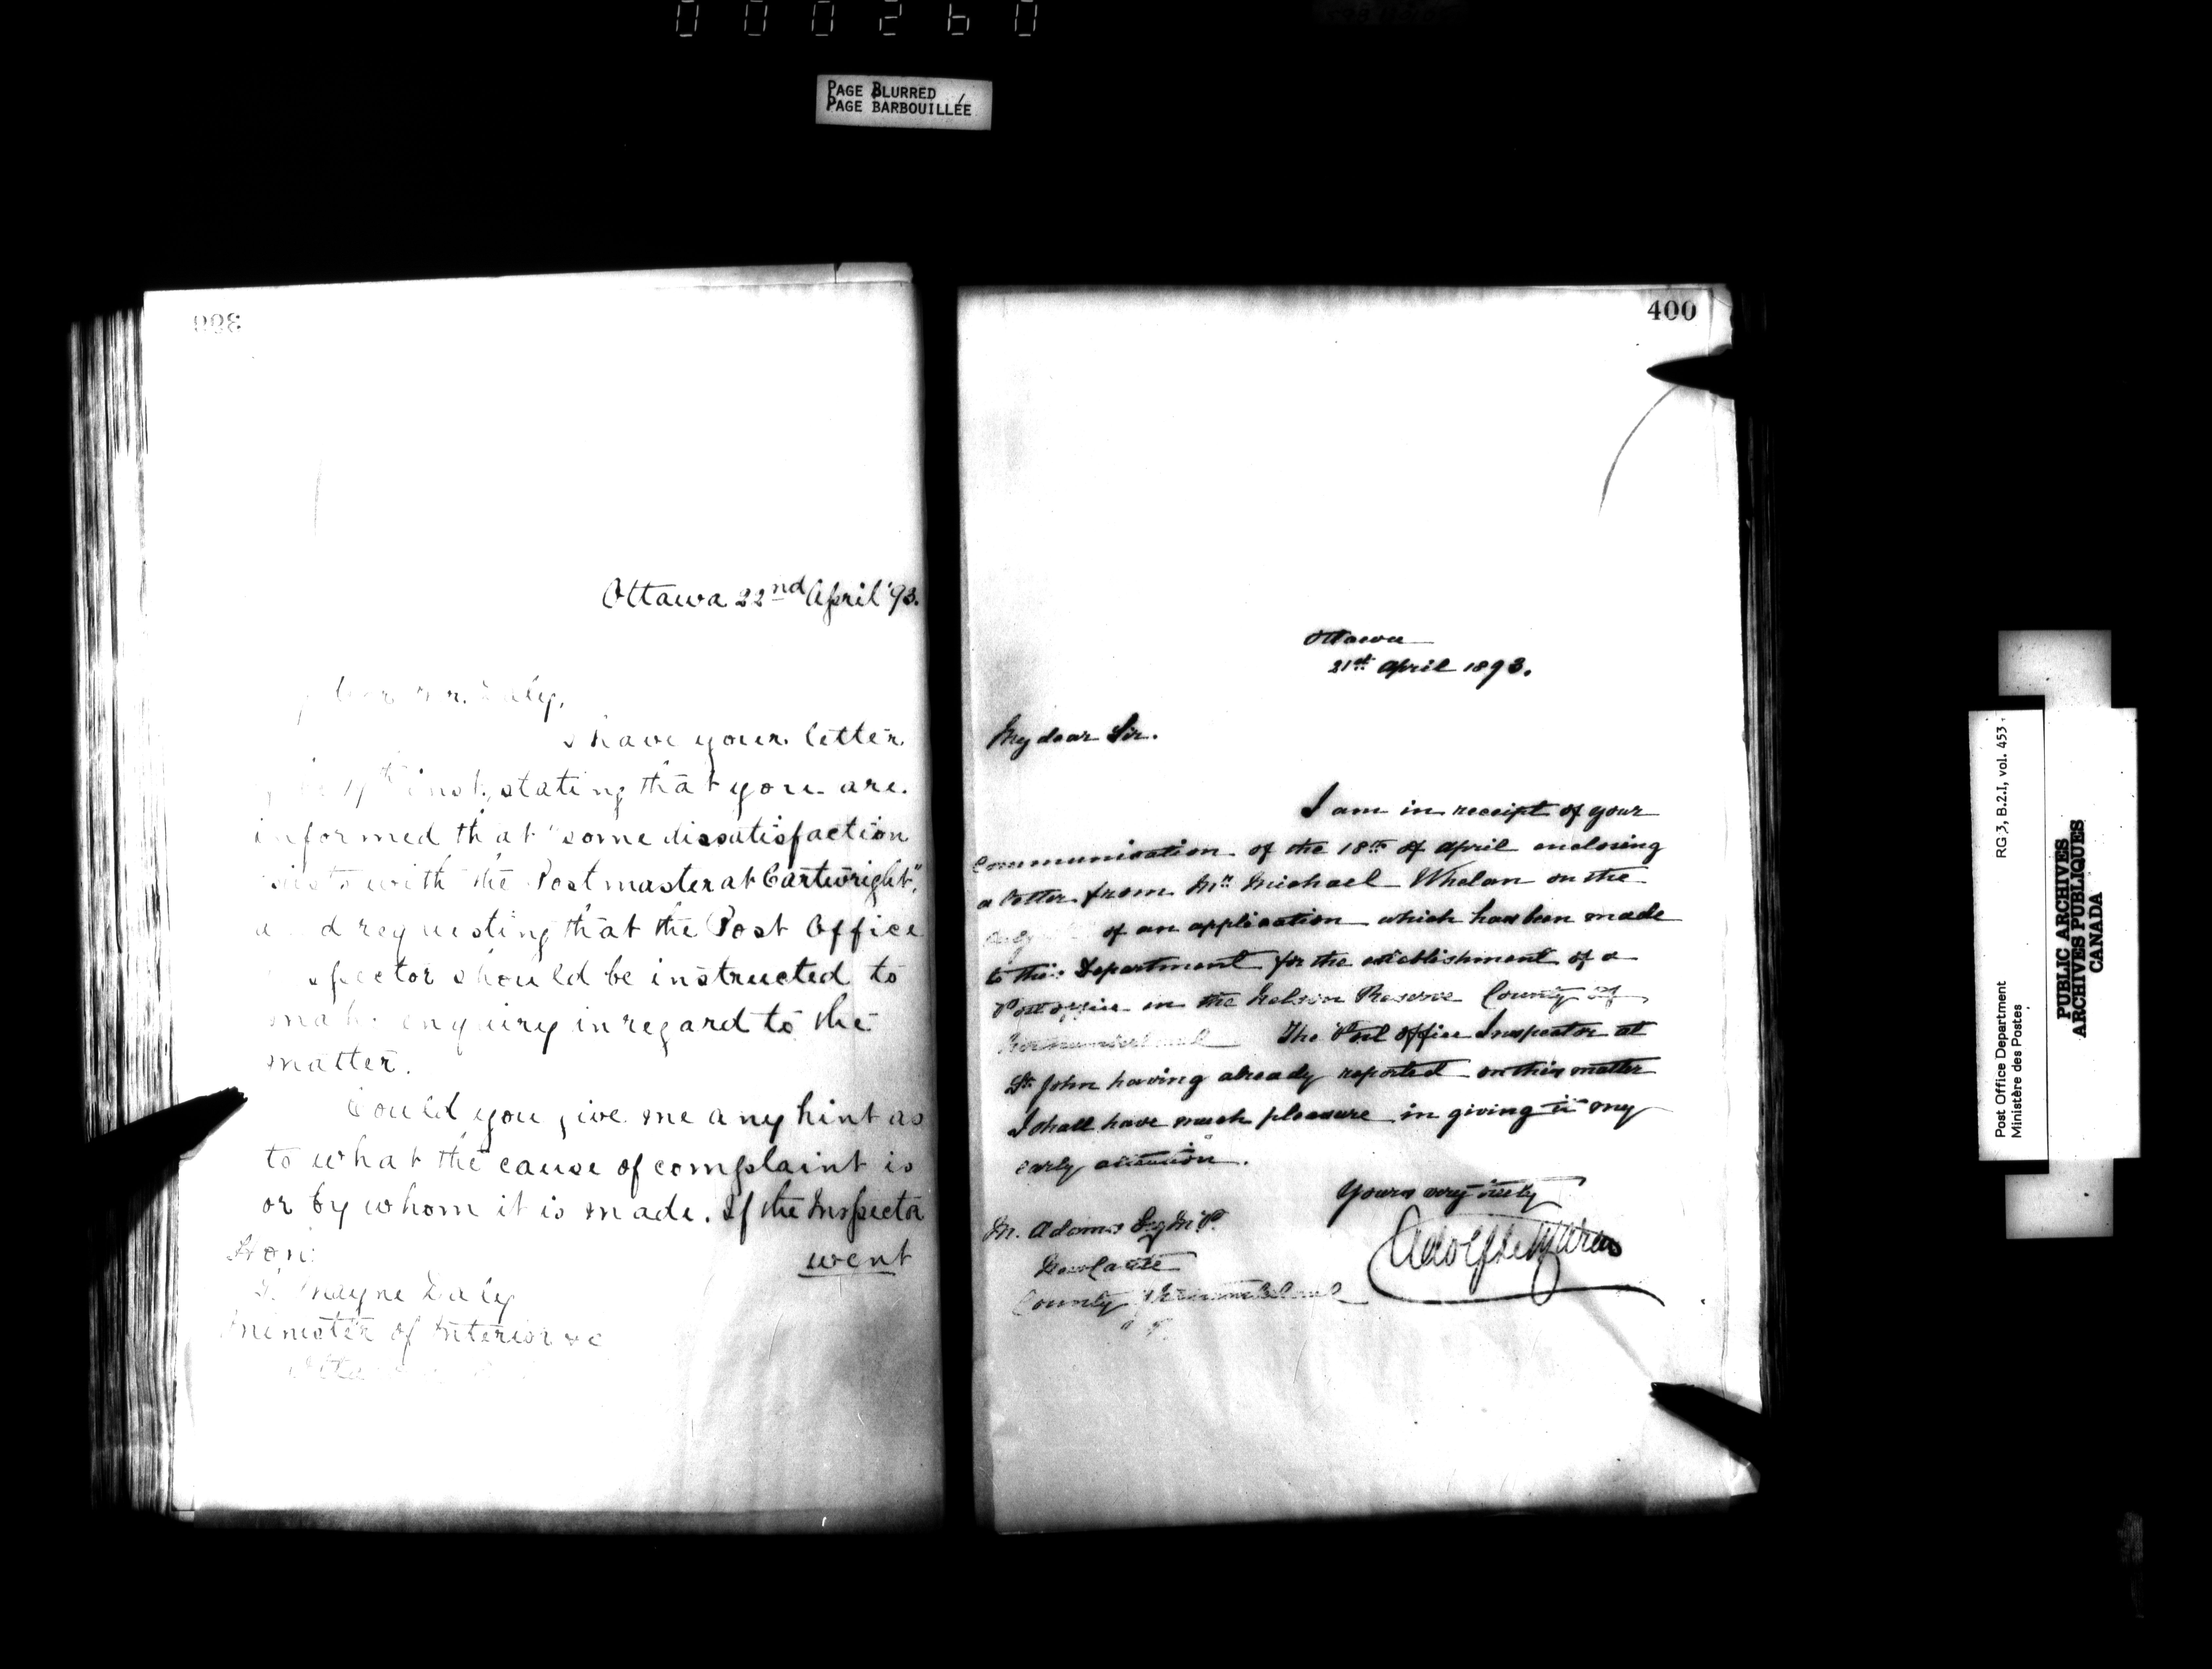 000260
PAGE BLURRED
PAGE BARBOUILLÉE
Ottawa 22nd April '93.
Daly,
I have your letter
17th inst, stating that you are
informed that "some dissatisfaction
exists with the Postmaster at Cartwright",
and requesting that the Post Office
spector should be instructed to
make enquiry in regard to the
matter.
Could you give me any hint as
to what the cause of complaint is
or by whom it is made. If the Inspector
went
Hon:
T. Mayne Daly
Minister of Interior &c
400
Ottawa
21st April 1893.
My dear Sir.
I am in receipt of your
Communication of the 18th of April enclosing
a letter from Mr Michael Whelan on the
of an application which has been made
to this Department for the establishment of a
Post office in the Nelson Reserve County of
Northumberland The Post Office Inspector at
St John having already reported on this matter
I shall have much pleasure in giving it my
early attention.
Yours very truly
Adolphe P. Caron
M. Adams Esq M.P.
Newcastle
County Northumberland
RG 3, B.2.1, vol. 453,
Post Office Department
Ministère des Postes
PUBLIC ARCHIVES
ARCHIVES PUBLIQUES
CANADA